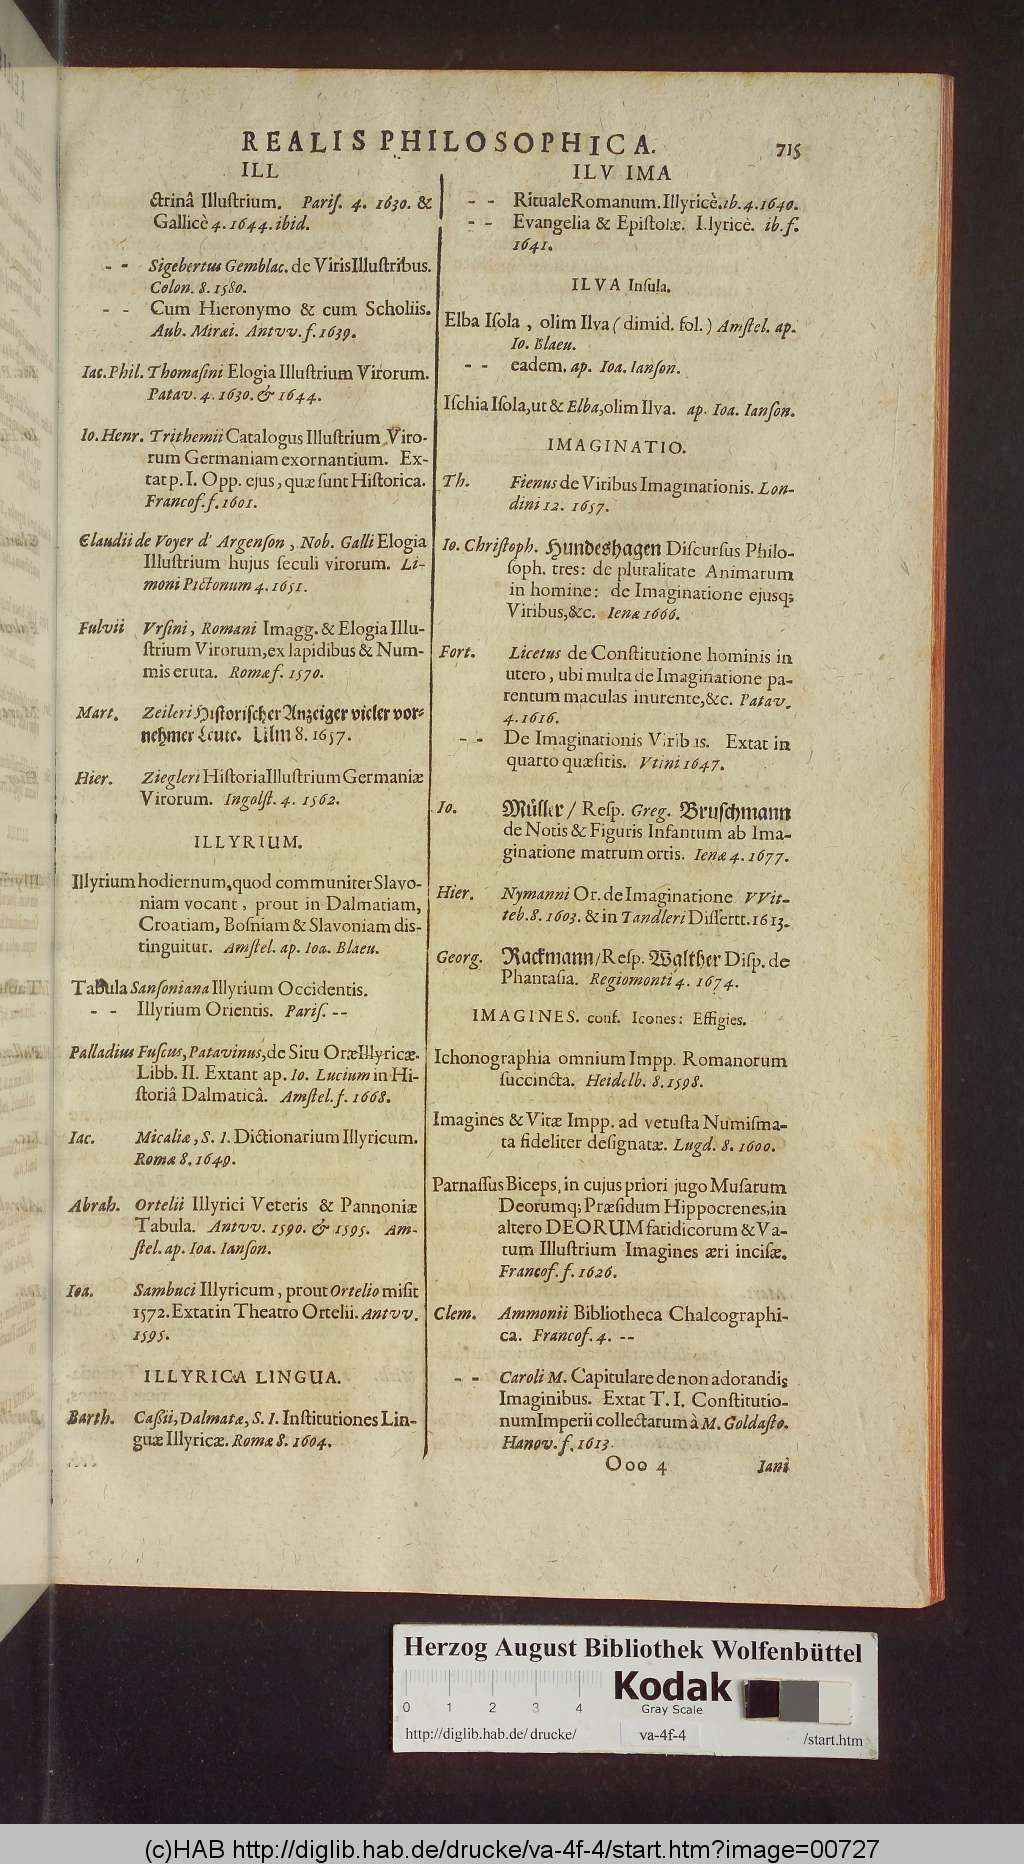 REALIS PHILOSOPHICA. 715
ILL
ctrinâ Illuſtrium. Pariſ. 4. 1630. &
Gallicè 4. 1644. ibid.
- - Sigebertus Gemblac. de Viris Illuſtribus.
Colon. 8. 1580.
- - Cum Hieronymo & cum Scholiis.
Aub. Miræi. Antvv. f. 1639.
Iac. Phil. Thomaſini Elogia Illuſtrium Virorum.
Patav. 4. 1630. & 1644.
Io. Henr. Trithemii Catalogus Illuſtrium Viro-
rum Germaniam exornantium. Ex-
tat p. I. Opp. ejus, quæ ſunt Hiſtorica.
Francof. f. 1601.
Claudii de Voyer d' Argenſon, Nob. Galli Elogia
Illuſtrium hujus ſeculi virorum. Li-
moni Pictonum 4. 1651.
Fulvii Vrſini, Romani Imagg. & Elogia Illu-
ſtrium Virorum, ex lapidibus & Num-
mis eruta. Romæ f. 1570.
Mart. Zeileri Hiſtoriſcher Anzeiger vieler vor-
nehmer Leute. Ulm 8. 1657.
Hier. Ziegleri Hiſtoria Illuſtrium Germaniæ
Virorum. Ingolſt. 4. 1562.
ILLYRIUM.
Illyrium hodiernum, quod communiter Slavo-
niam vocant, prout in Dalmatiam,
Croatiam, Boſniam & Slavoniam diſ-
tinguitur. Amſtel. ap. Ioa. Blaeu.
Tabula Sanſoniana Illyrium Occidentis.
- - Illyrium Orientis. Pariſ. --
Palladius Fuſcus, Patavinus, de Situ Oræ Illyricæ.
Libb. II. Extant ap. Io. Lucium in Hi-
ſtoriâ Dalmaticâ. Amſtel. f. 1668.
Iac. Micaliæ, S. I. Dictionarium Illyricum.
Romæ 8. 1649.
Abrah. Ortelii Illyrici Veteris & Pannoniæ
Tabula. Antvv. 1590. & 1595. Am-
ſtel. ap. Ioa. Ianſon.
Ioa. Sambuci Illyricum, prout Ortelio miſit
1572. Extat in Theatro Ortelii. Antvv.
1595.
ILLYRICA LINGUA.
Barth. Caßii, Dalmatæ, S. I. Inſtitutiones Lin-
guæ Illyricæ. Romæ 8. 1604.
ILV IMA
- - Rituale Romanum. Illyricè. ib. 4. 1640.
- - Evangelia & Epiſtolæ. Illyricè. ib. f.
1641.
ILVA Inſula.
Elba Iſola, olim Ilva (dimid. fol.) Amſtel. ap.
Io. Blaeu.
- - eadem. ap. Ioa. Ianſon.
Iſchia Iſola, ut & Elba, olim Ilva. ap. Ioa. Ianſon.
IMAGINATIO.
Th. Fienus de Viribus Imaginationis. Lon-
dini 12. 1657.
Io. Chriſtoph. Hundeshagen Diſcurſus Philo-
ſoph. tres: de pluralitate Animarum
in homine: de Imaginatione ejusq;
Viribus, &c. Ienæ 1666.
Fort. Licetus de Conſtitutione hominis in
utero, ubi multa de Imaginatione pa-
rentum maculas inurente, &c. Patav.
4. 1616.
- - De Imaginationis Viribus. Extat in
quarto quæſitis. Vtini 1647.
Io. Müller / Reſp. Greg. Bruſchmann
de Notis & Figuris Infantum ab Ima-
ginatione matrum ortis. Ienæ 4. 1677.
Hier. Nymanni Or. de Imaginatione VVit-
teb. 8. 1603. & in Tandleri Diſſertt. 1613.
Georg. Rackmann / Reſp. Walther Diſp. de
Phantaſia. Regiomonti 4. 1674.
IMAGINES. conf. Icones: Effigies.
Ichonographia omnium Impp. Romanorum
ſuccincta. Heidelb. 8. 1598.
Imagines & Vitæ Impp. ad vetuſta Numiſma-
ta fideliter deſignatæ. Lugd. 8. 1600.
Parnaſſus Biceps, in cujus priori jugo Muſarum
Deorumq; Præſidum Hippocrenes, in
altero DEORUM fatidicorum & Va-
tum Illuſtrium Imagines æri inciſæ.
Francof. f. 1626.
Clem. Ammonii Bibliotheca Chalcographi-
ca. Francof. 4. --
- - Caroli M. Capitulare de non adorandis
Imaginibus. Extat T. I. Conſtitutio-
num Imperii collectarum à M. Goldaſto.
Hanov. f. 1613.
Ooo 4 Iani
Herzog August Bibliothek Wolfenbüttel
0 1 2 3 4
Kodak
Gray Scale
http://diglib.hab.de/drucke/ va-4f-4 /start.htm
(c)HAB http://diglib.hab.de/drucke/va-4f-4/start.htm?image=00727